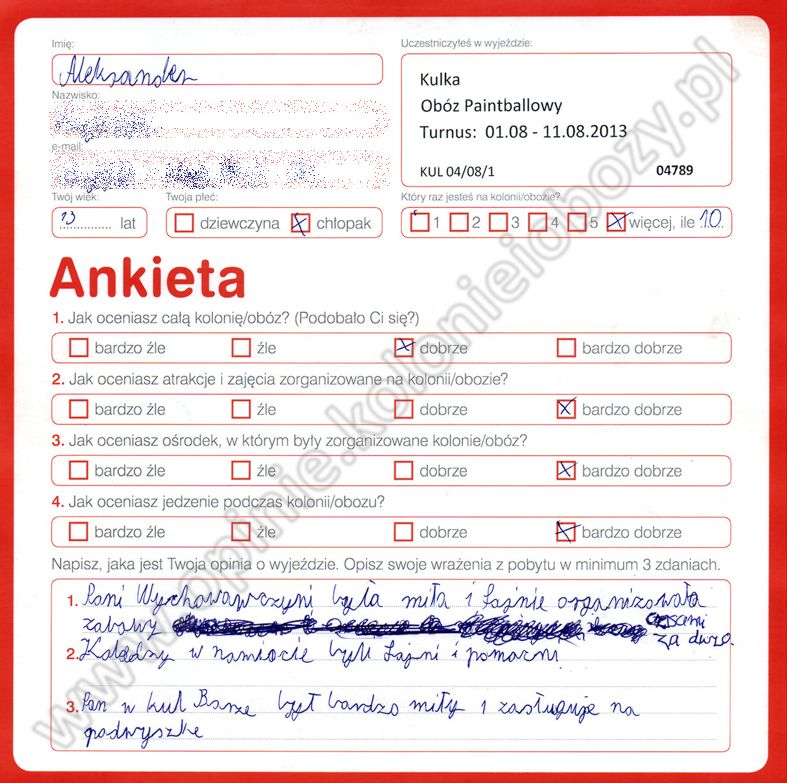 Imię:
Aleksander
Uczestniczyłeś w wyjeździe:
Kulka
Obóz Paintballowy
Turnus: 01.08 - 11.08.2013
KUL 04/08/1 04789
Nazwisko:
e-mail:
Twój wiek:
13 lat
Twoja płeć:
dziewczyna chłopak
Który raz jesteś na kolonii/obozie?
1 2 3 4 5 więcej, ile 10
Ankieta
1. Jak oceniasz całą kolonię/obóz? (Podobało Ci się?)
bardzo źle źle dobrze bardzo dobrze
2. Jak oceniasz atrakcje i zajęcia zorganizowane na kolonii/obozie?
bardzo źle źle dobrze bardzo dobrze
3. Jak oceniasz ośrodek, w którym były zorganizowane kolonie/obóz?
bardzo źle źle dobrze bardzo dobrze
4. Jak oceniasz jedzenie podczas kolonii/obozu?
bardzo źle źle dobrze bardzo dobrze
Napisz, jaka jest Twoja opinia o wyjeździe. Opisz swoje wrażenia z pobytu w minimum 3 zdaniach.
1. Pani Wychowawczyni była miła i fajnie organizowała
zabawy czasami
za dużo.
2. Koledzy w namiocie byli fajni i pomocni
3. Pan w kul Barze był bardzo miły i zasługuje na
podwyszke
www.opinie.kolonieiobozy.pl